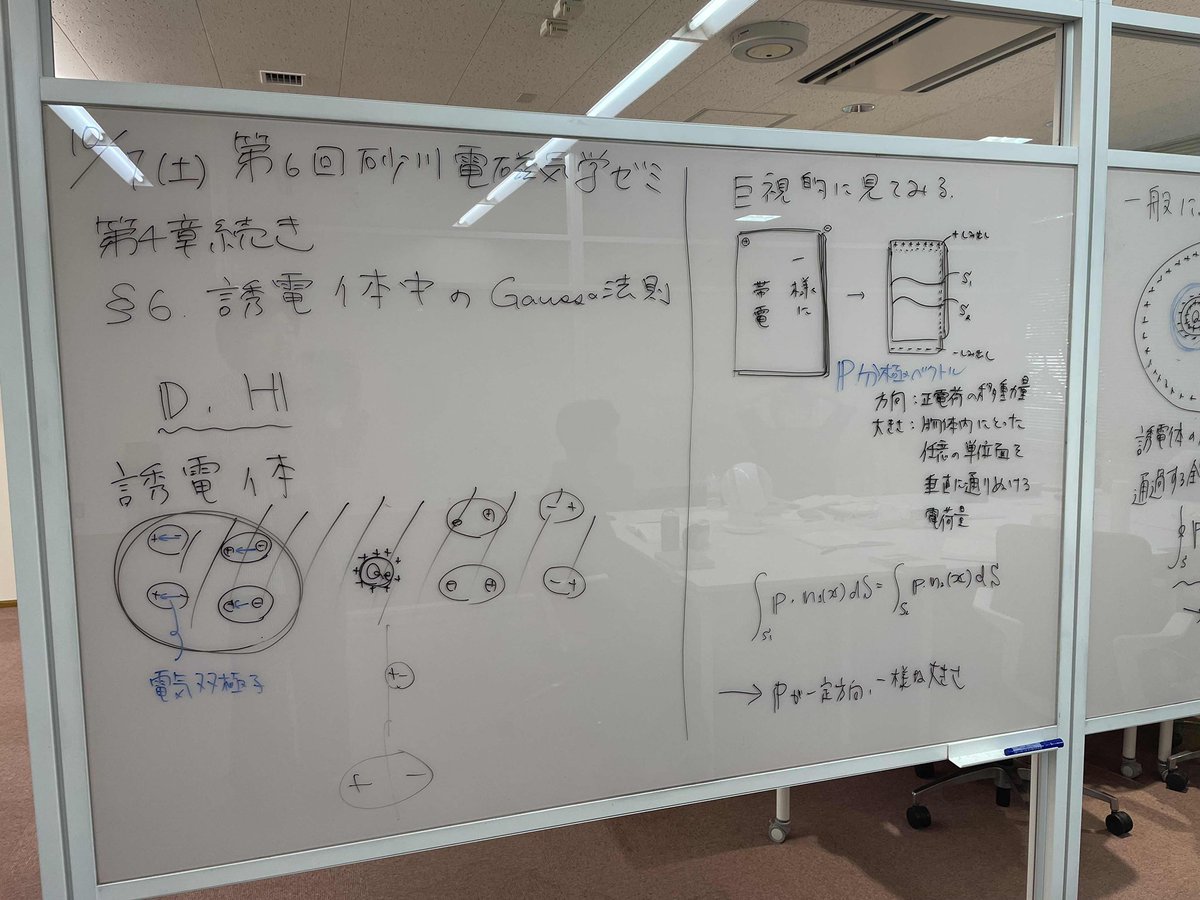 10/7(土) 第6回砂川電磁気学ゼミ
第4章続き
§6. 誘電体中のGaussの法則
D. H
誘電体
電気双極子
巨視的に見てみる.
一様に
帯電
→
+しみ出し
S₁
S₂
-しみ出し
P 分極ベクトル
方向:正電荷の移動量
大きさ:物体内にとった
任意の単位面を
垂直に通りぬける
電荷量
∫_{S₁} P・n₁(x)dS = ∫_{S₂} P・n₂(x)dS
→ Pが一定方向、一様な大きさ
一般に
誘電体の
通過する全